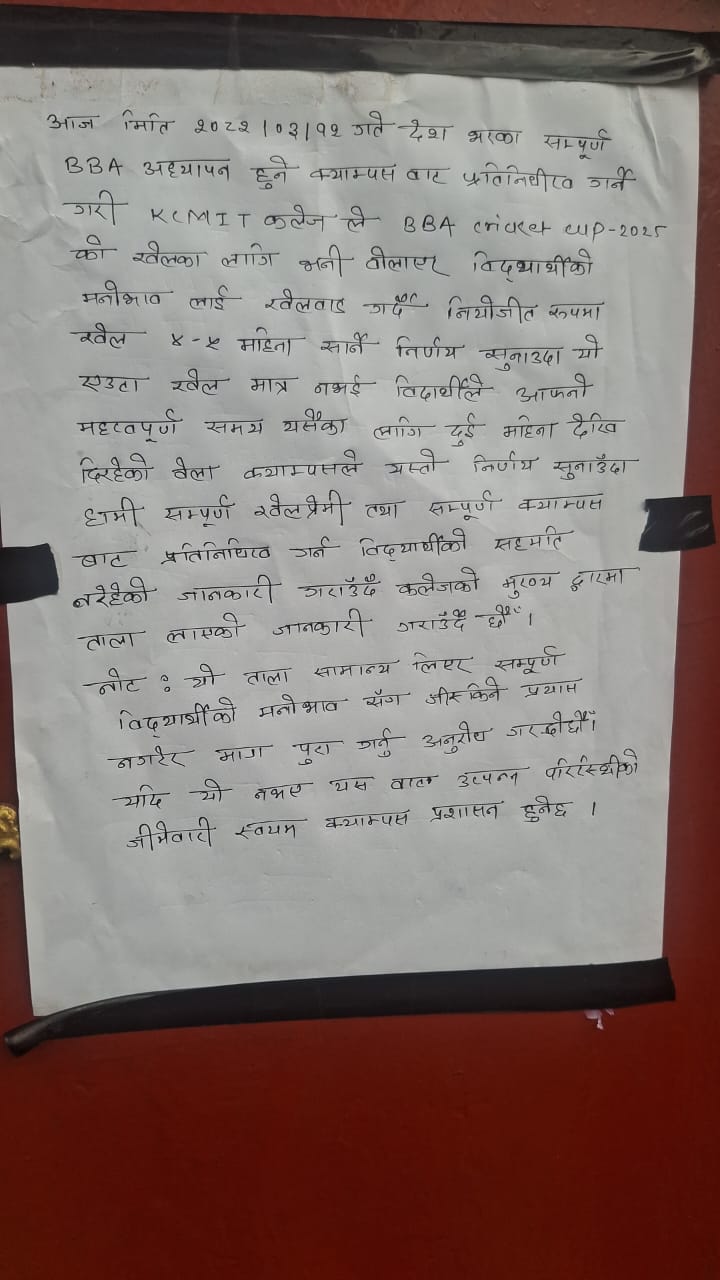 आज मिति २०८२।०३।१२ गते देश भरका सम्पूर्ण
BBA अध्यापन हुने क्याम्पस बाट प्रतिनिधीत्व गर्ने
गरी KCMIT कलेज ले BBA cricket cup-2025
को खेलका लागि भनी वोलाएर विद्यार्थीको
मनोभाव लाई खेलवाड गर्दै नियोजीत रूपमा
खेल ४-५ महिना सार्ने निर्णय सुनाउदा यो
एउटा खेल मात्र नभई विद्यार्थीले आफनो
महत्वपूर्ण समय यसैका लागि दुई महिना देखि
दिरहेको बेला क्याम्पसले यस्तो निर्णय सुनाउँदा
हामी सम्पूर्ण खेलप्रेमी तथा सम्पूर्ण क्याम्पस
बाट प्रतिनिधित्व गर्ने विद्यार्थीको सहमति
नरहेको जानकारी गराउँदै कलेजको मुख्य द्वारमा
ताला लाएको जानकारी गराउँदै छौँ।
नोट : यो ताला सामान्य लिएर सम्पूर्ण
विद्यार्थीको मनोभाव सँग जीस्किने प्रयास
नगरेर माग पुरा गर्नु अनुरोध गरन्छौँ।
यदि यो नभए यस वाट उत्पन्न परिस्थिीको
जीमेवारी स्वयम क्याम्पस प्रशासन हुनेछ ।